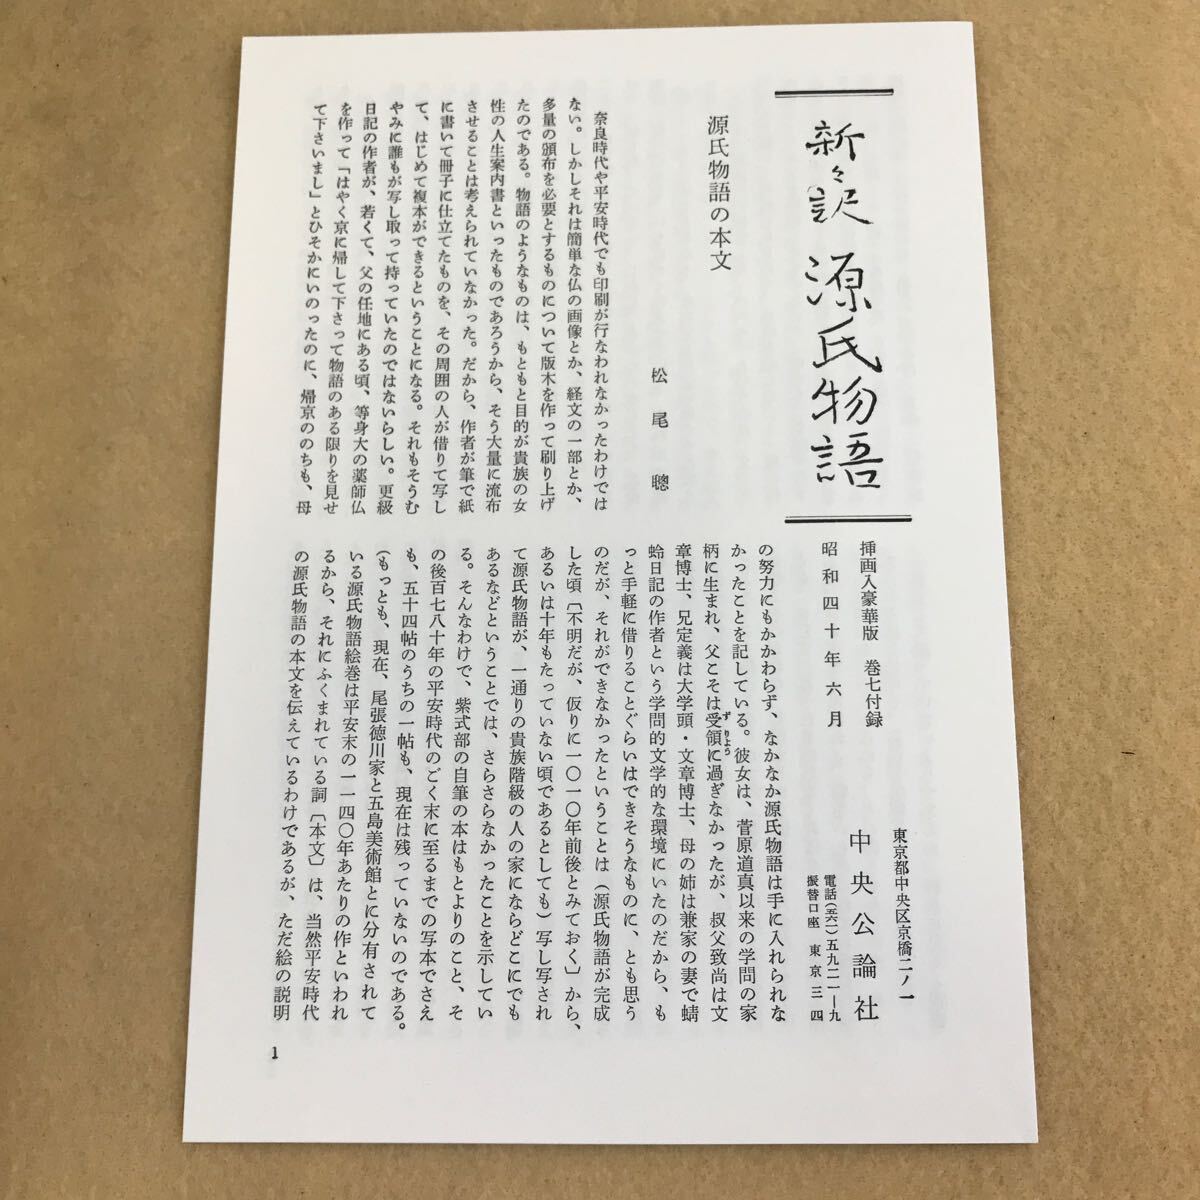 新々訳 源氏物語
挿画入豪華版 巻七付録
昭和四十年六月
東京都中央区京橋二ノ一
中央公論社
電話(五六一)五九二一―九
振替口座 東京三四
源氏物語の本文
松尾聰
奈良時代や平安時代でも印刷が行なわれなかったわけでは
ない。しかしそれは簡単な仏の画像とか、経文の一部とか、
多量の頒布を必要とするものについて版木を作って刷り上げ
たのである。物語のようなものは、もともと目的が貴族の女
性の人生案内書といったものであろうから、そう大量に流布
させることは考えられていなかった。だから、作者が筆で紙
に書いて冊子に仕立てたものを、その周囲の人が借りて写し
て、はじめて複本ができるということになる。それもそうむ
やみに誰もが写し取って持っていたのではないらしい。更級
日記の作者が、若くて、父の任地にある頃、等身大の薬師仏
を作って「はやく京に帰して下さって物語のある限りを見せ
て下さいまし」とひそかにいのったのに、帰京ののちも、母
の努力にもかかわらず、なかなか源氏物語は手に入れられな
かったことを記している。彼女は、菅原道真以来の学問の家
柄に生まれ、父こそは受領ずりょうに過ぎなかったが、叔父致尚は文
章博士、兄定義は大学頭・文章博士、母の姉は兼家の妻で蜻
蛉日記の作者という学問的文学的な環境にいたのだから、も
っと手軽に借りることぐらいはできそうなものに、とも思う
のだが、それができなかったということは(源氏物語が完成
した頃〔不明だが、仮りに一〇一〇年前後とみておく〕から、
あるいは十年もたっていない頃であるとしても)写し写され
て源氏物語が、一通りの貴族階級の人の家にならどこにでも
あるなどということでは、さらさらなかったことを示してい
る。そんなわけで、紫式部の自筆の本はもとよりのこと、そ
の後百七八十年の平安時代のごく末に至るまでの写本でさえ
も、五十四帖のうちの一帖も、現在は残っていないのである。
(もっとも、現在、尾張徳川家と五島美術館とに分有されて
いる源氏物語絵巻は平安末の一一四〇年あたりの作といわれ
るから、それにふくまれている詞〔本文〕は、当然平安時代
の源氏物語の本文を伝えているわけであるが、ただ絵の説明
1